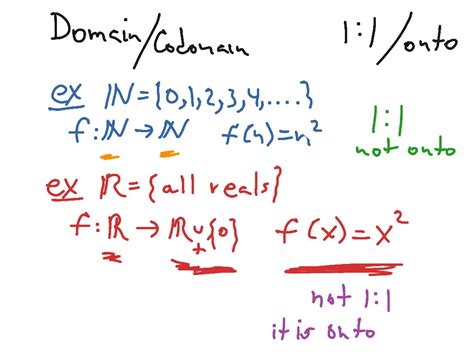 Domain/Codomain 1:1/onto
ex ℕ={0,1,2,3,4,....}
f:ℕ→ℕ f(n)=n² 1:1
not onto
ex ℝ={all reals}
f:ℝ→ℝ₊∪{0} f(x)=x²
not 1:1
it is onto